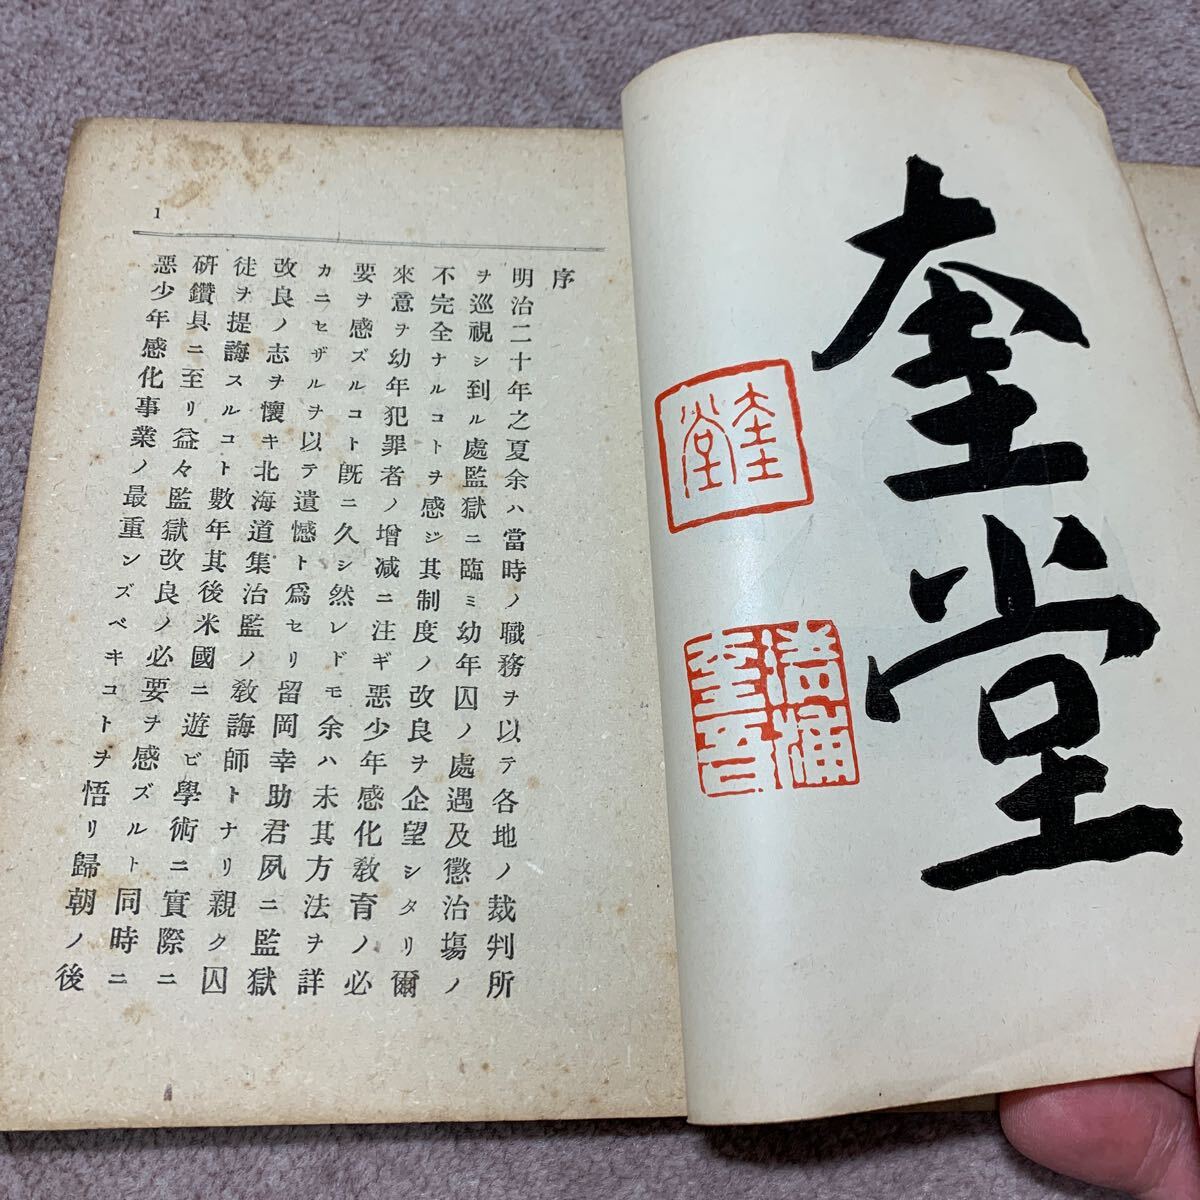 奎堂
奎堂
清浦
奎吾
1
序
明治二十年之夏余ハ當時ノ職務ヲ以テ各地ノ裁判所
ヲ巡視シ到ル處監獄ニ臨ミ幼年囚ノ處遇及懲治場ノ
不完全ナルコトヲ感ジ其制度ノ改良ヲ企望シタリ爾
來意ヲ幼年犯罪者ノ增減ニ注ギ惡少年感化敎育ノ必
要ヲ感ズルコト旣ニ久シ然レドモ余ハ未其方法ヲ詳
カニセザルヲ以テ遺憾ト爲セリ留岡幸助君夙ニ監獄
改良ノ志ヲ懷キ北海道集治監ノ敎誨師トナリ親ク囚
徒ヲ提誨スルコト數年其後米國ニ遊ビ學術ニ實際ニ
硏鑽具ニ至リ益々監獄改良ノ必要ヲ感ズルト同時ニ
惡少年感化事業ノ最重ンズベキコトヲ悟リ歸朝ノ後